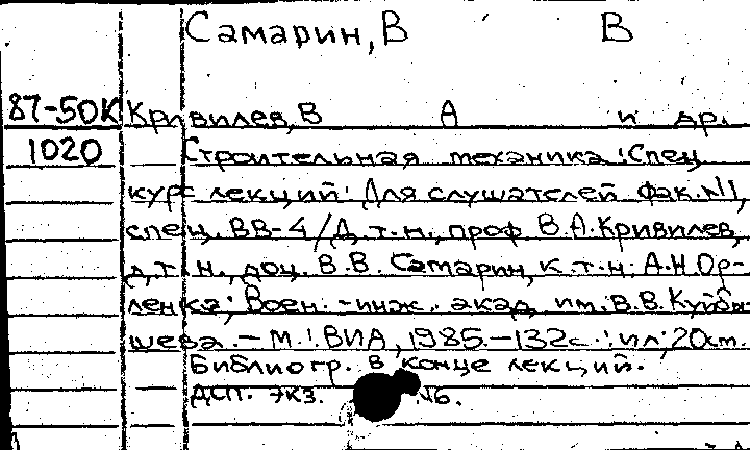 Самарин, В В
87-50К Кривилев, В А и др.
1020 Строительная механика: Спец.
курс лекций: Для слушателей фак. №1,
спец. ВВ-4/Д.т.н., проф. В.А. Кривилев,
д.т.н., доц. В.В. Самарин, к.т.н. А.Н. Ор-
ленко; Воен.-инж. акад. им. В.В. Куйбы-
шева. - М.: ВИА, 1985. - 132с.: ил; 20см.
Библиогр. в конце лекций.
ДСП. Экз. №6.